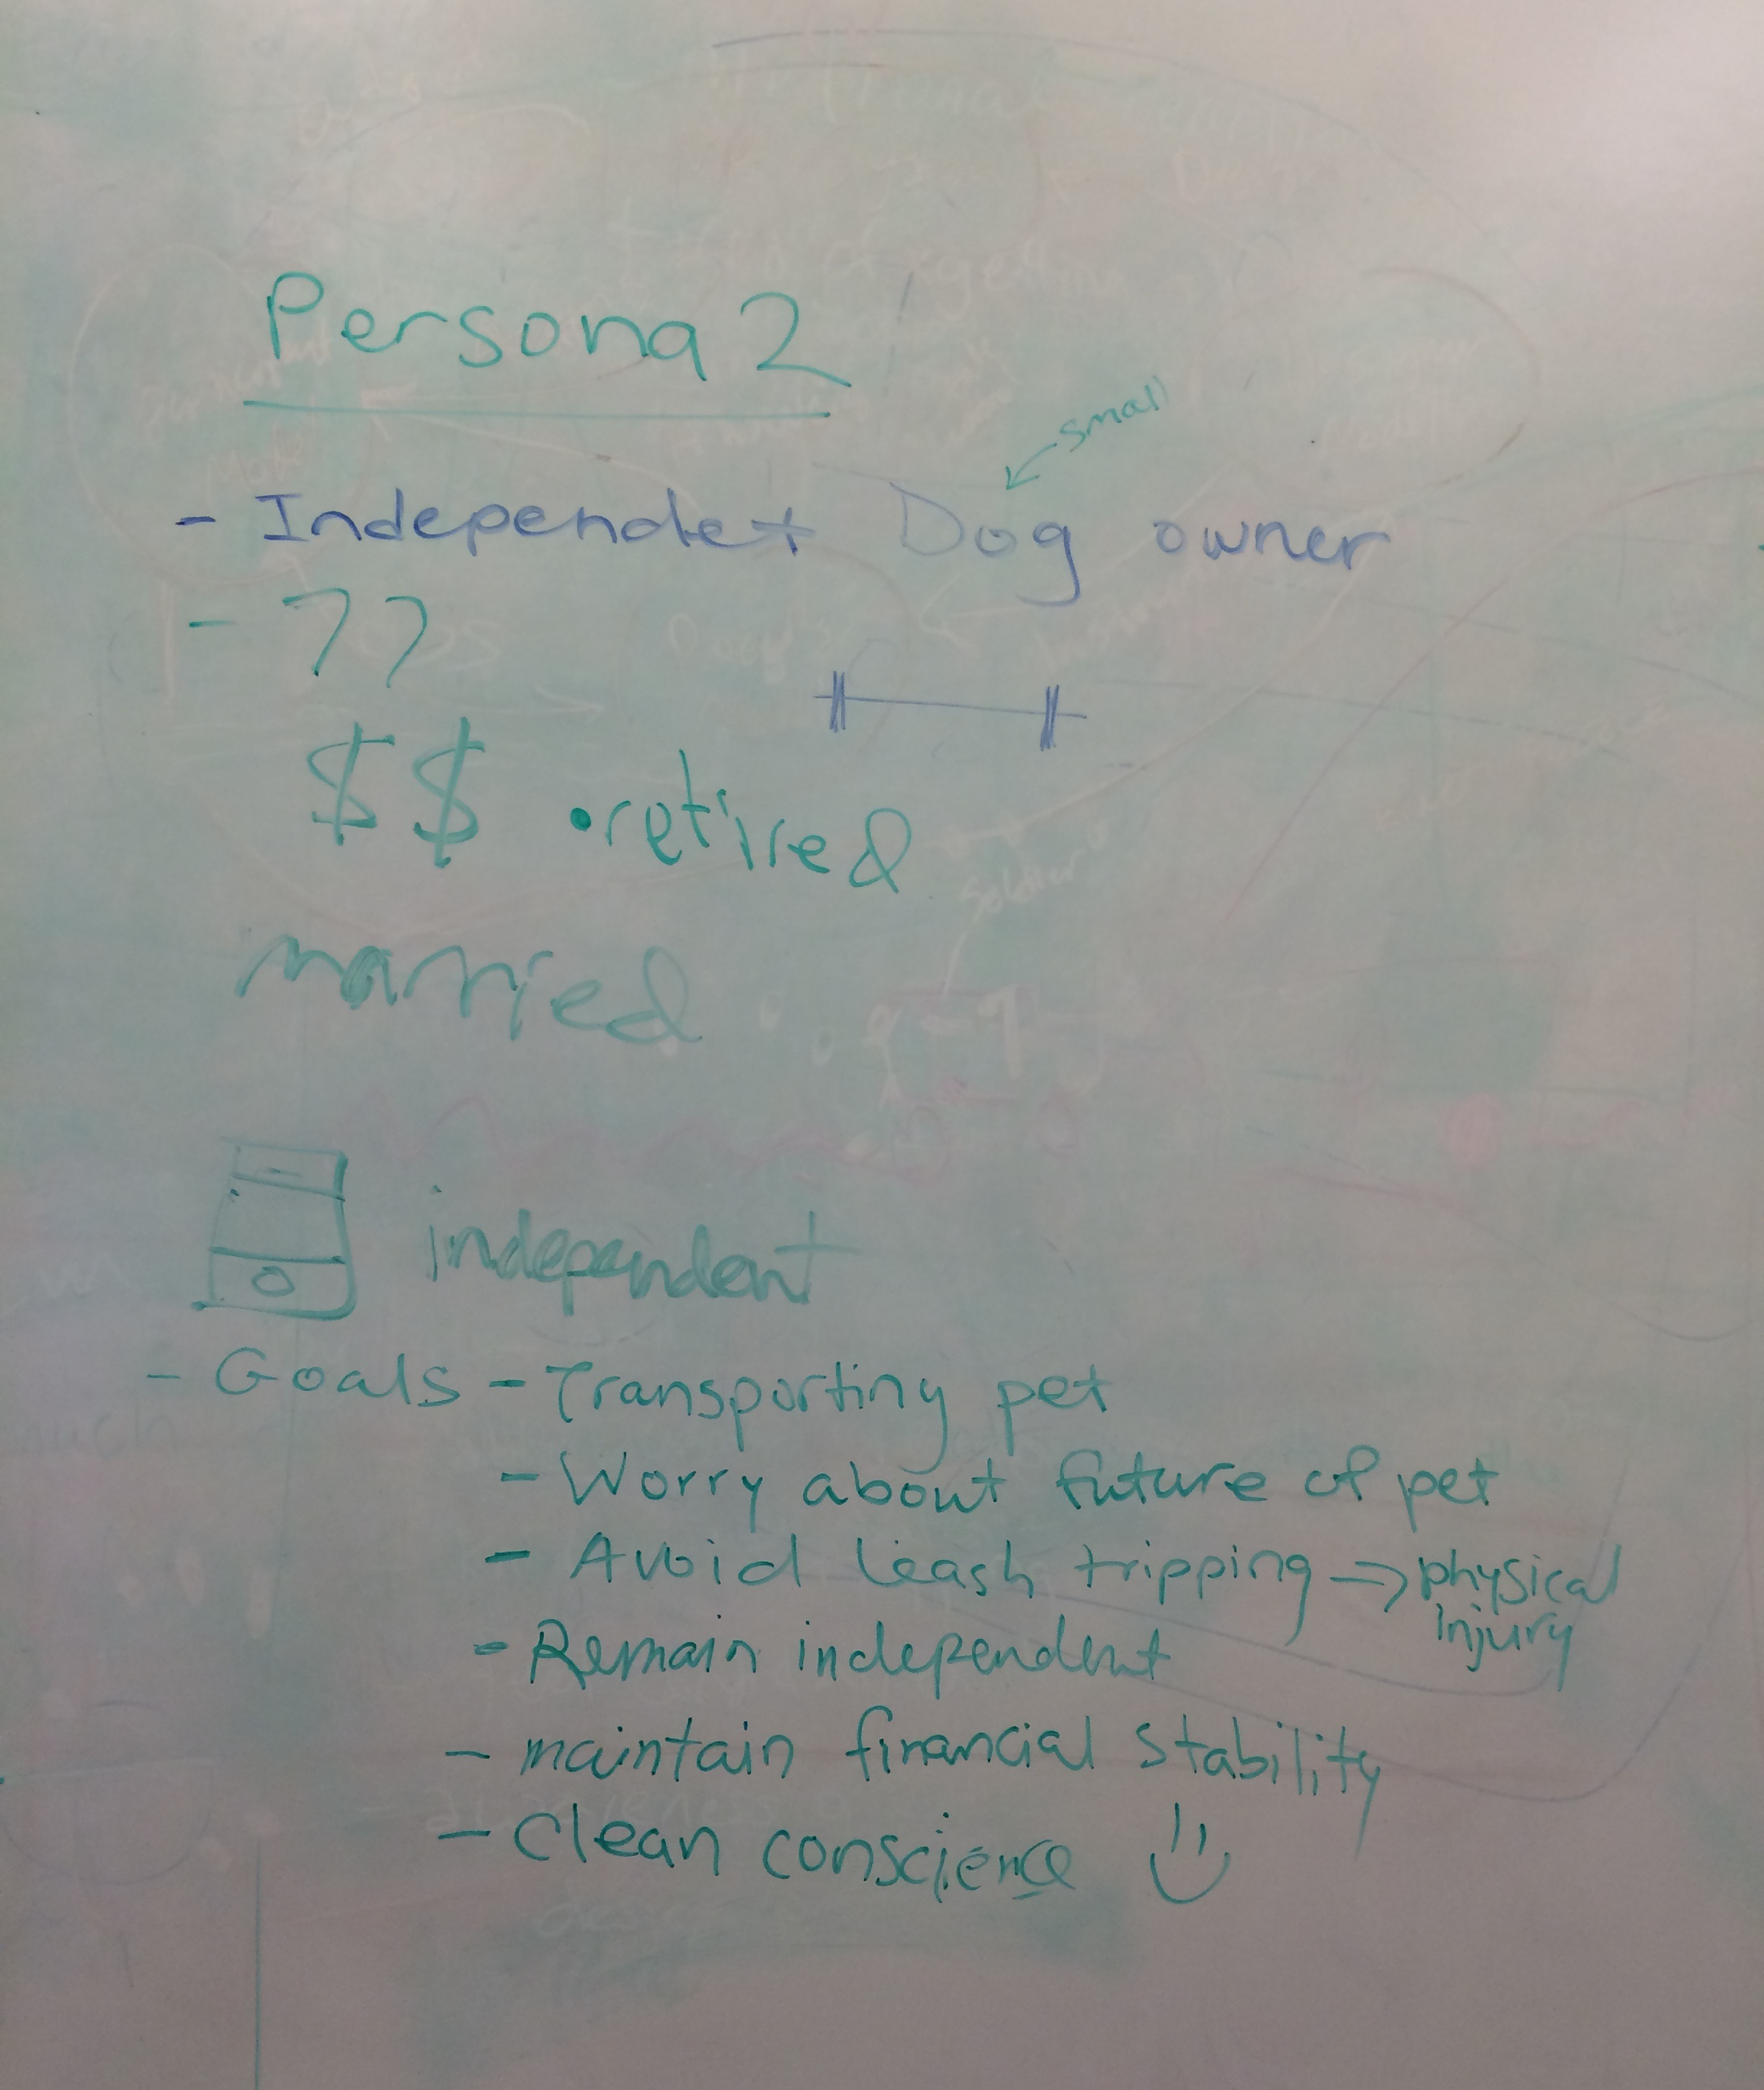 Persona 2
small
- Independet Dog owner
- 77
$$ • retired
married
independent
- Goals - Transporting pet
- Worry about future of pet
- Avoid leash tripping → physical
injury
- Remain independent
- maintain financial stability
- Clean conscience
Soldier